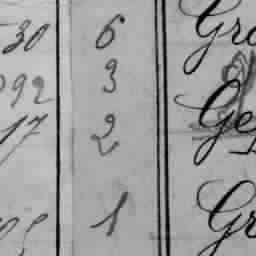 30 6 Gr
92 3
17 2 Ge
1 Gr